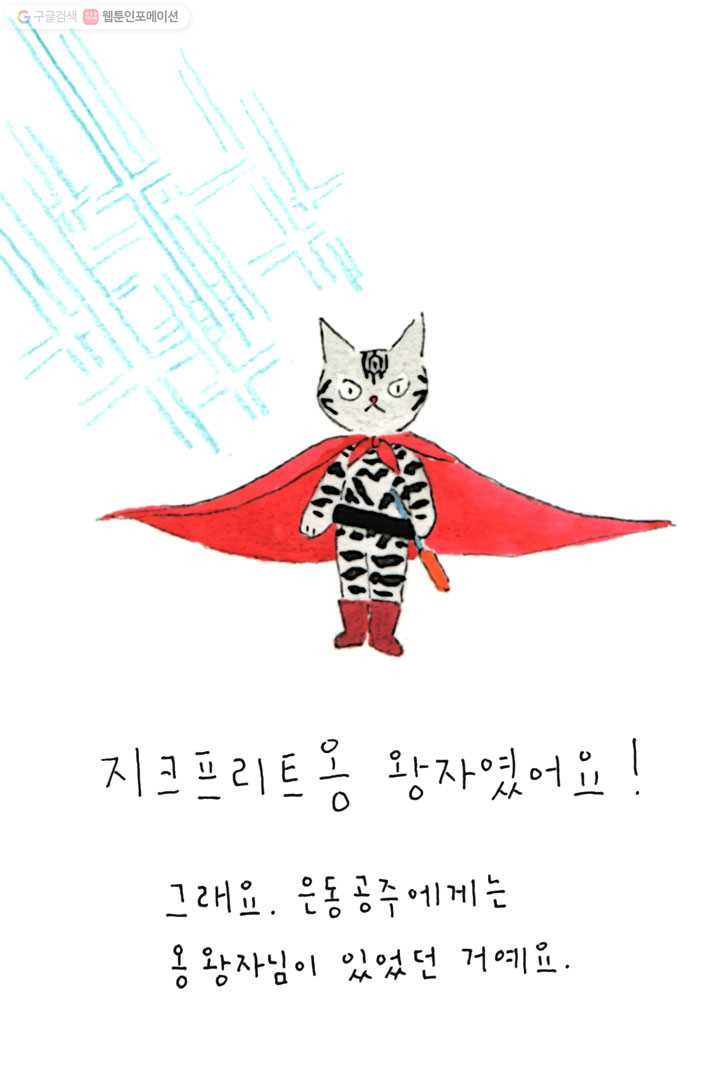 구글검색 웹툰인포메이션
지크프리트옹 왕자였어요!
그래요. 운동공주에게는
옹왕자님이 있었던 거예요.